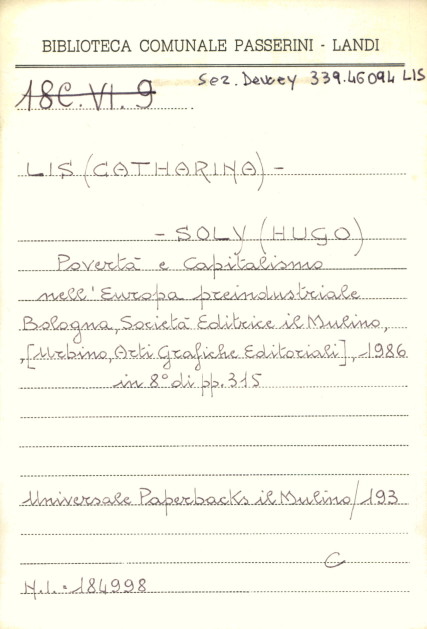 BIBLIOTECA COMUNALE PASSERINI - LANDI
Sez. Dewey 339.46094 LIS
18C.VI.9
LIS (CATHARINA) -
- SOLY (HUGO)
Povertà e Capitalismo
nell'Europa preindustriale
Bologna, Società Editrice il Mulino,
,[Urbino, Arti Grafiche Editoriali], 1986
in 8° di pp. 315
Universale Paperbacks il Mulino/193
C
N.I. - 184998